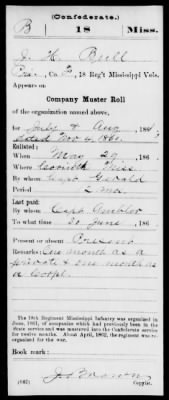 (Confederate.)
B 18 Miss.
J. H. Bull
Co. B, 18 Reg't Mississippi Vols.
Appears on
Company Muster Roll
of the organization named above,
for July & Aug, 186
dated Nov 4, 1861.
Enlisted:
When May 29, 186
Where Corinth Miss.
By whom Capt Gerald
Period 2 mo.
Last paid:
By whom Capt Ambler
To what time 30 June, 186
Present or absent Present
Remarks: One month as a
private & one month as
a Corpl.
The 18th Regiment Mississippi Infantry was organized in
June, 1861, of companies which had previously been in the
State service and was mustered into the Confederate service
for twelve months. About April, 1862, the regiment was re-
organized for the war.
Book mark:
(642)
Copyist.